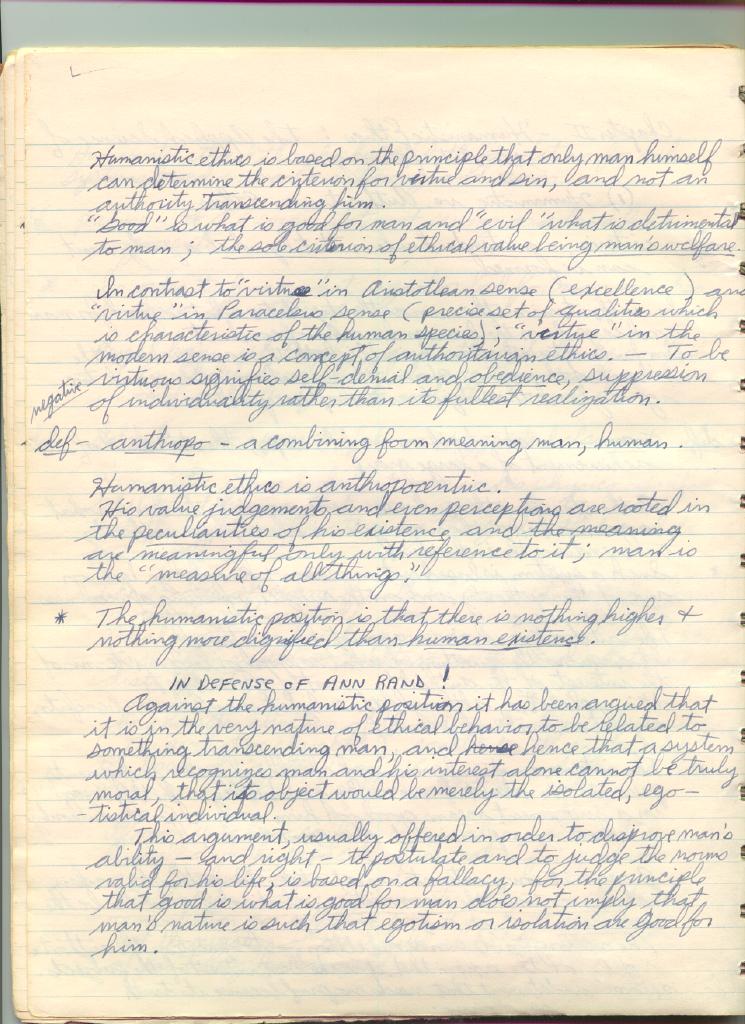 Humanistic ethics is based on the principle that only man himself
can determine the criterion for virtue and sin, and not an
authority transcending him.
"Good" is what is good for man and "evil" what is detrimental
to man ; the sole criterion of ethical value being man's welfare.
In contrast to "virtue" in Aristotlean sense (excellence) and
"virtue" in Paracelsus sense (precise set of qualities which
is characteristic of the human species); "virtue" in the
modern sense is a concept of authoritarian ethics. — To be
virtuous signifies self-denial and obedience, suppression
negative
of individuality rather than its fullest realization.
def - anthropo - a combining form meaning man, human.
Humanistic ethics is anthropocentric.
His value judgements and even perceptions are rooted in
the peculiarities of his existence and the meaning
are meaningful only with reference to it ; man is
the "measure of all things."
* The humanistic position is that there is nothing higher +
nothing more dignified than human existence.
IN DEFENSE OF ANN RAND !
Against the humanistic position it has been argued that
it is in the very nature of ethical behavior to be related to
something transcending man, and hense hence that a system
which recognizes man and his interest alone cannot be truly
moral, that its object would be merely the isolated, ego-
-tistical individual.
This argument, usually offered in order to disprove man's
ability - and right - to postulate and to judge the norms
valid for his life, is based on a fallacy, for the principle
that good is what is good for man does not imply that
man's nature is such that egotism or isolation are good for
him.